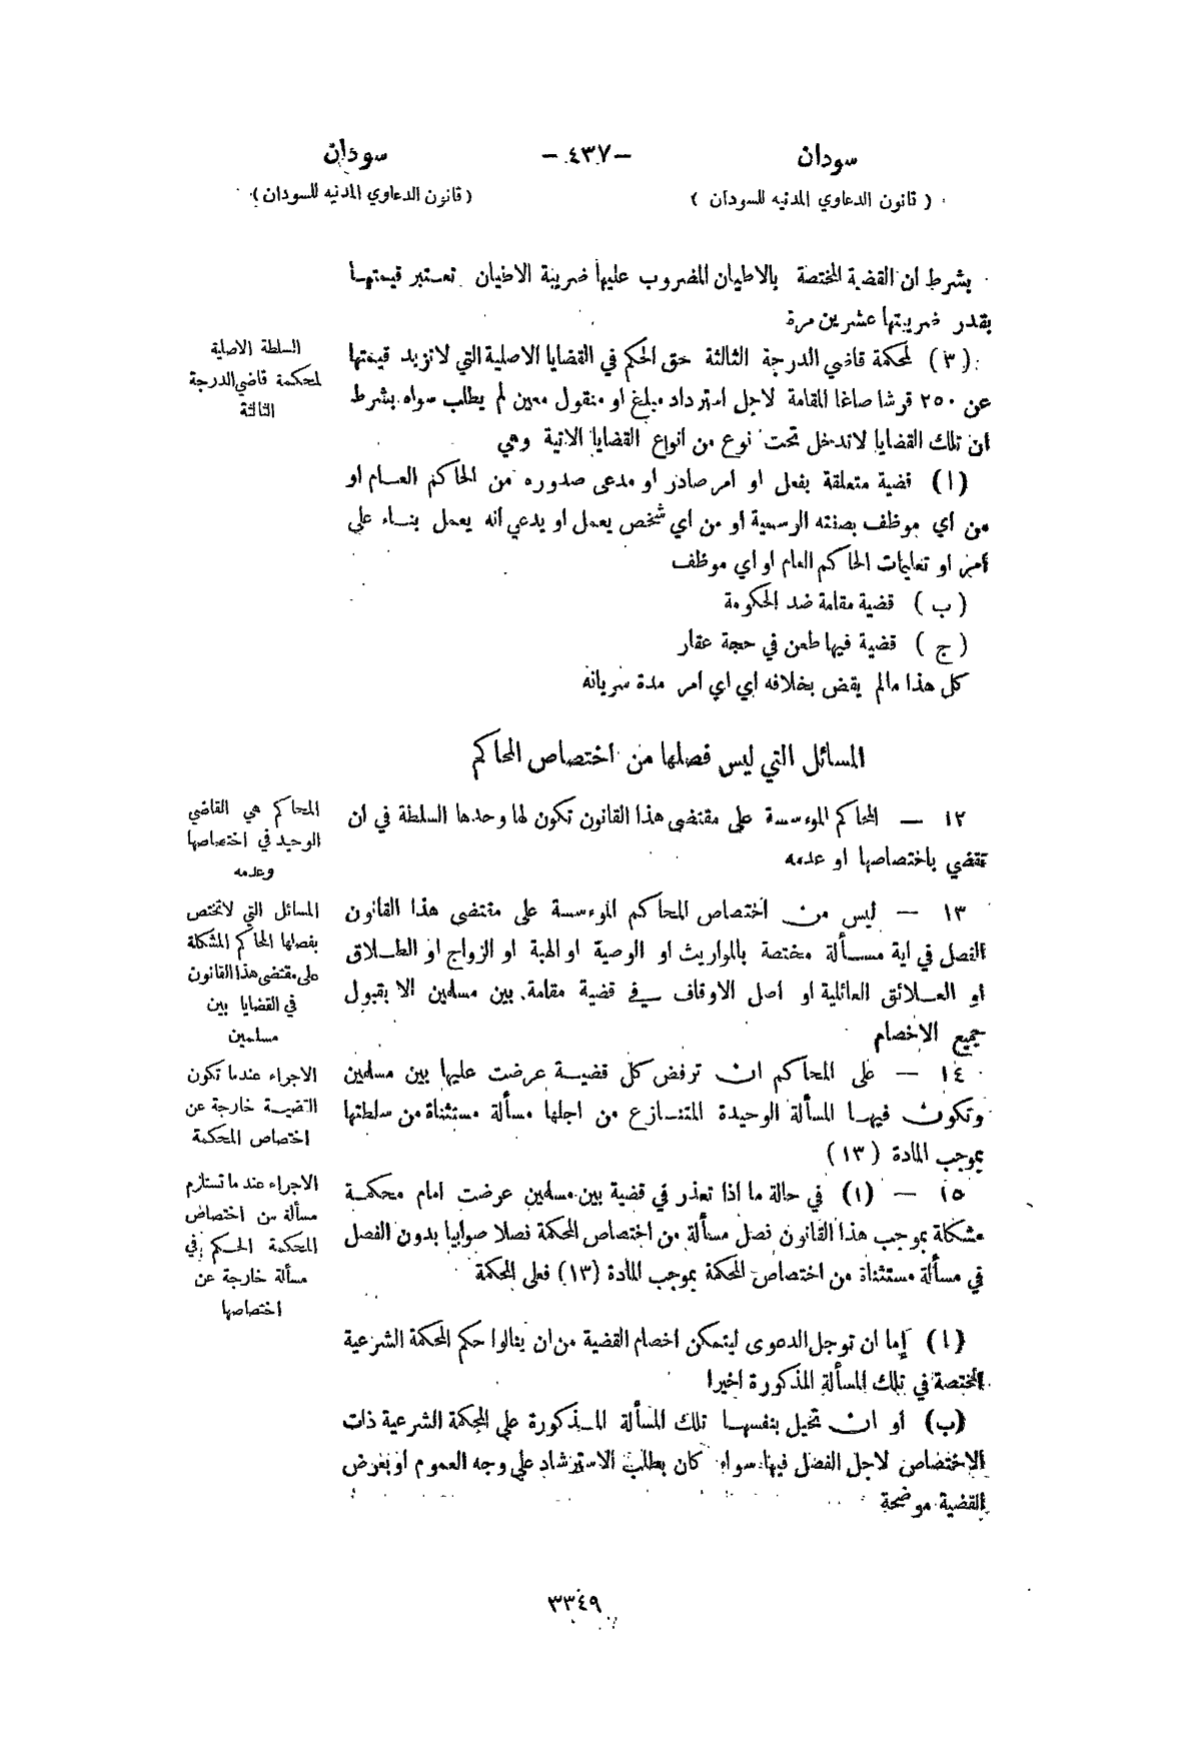 سودان
-٤٣٧-
سودان
( قانون الدعاوي المدنيه للسودان )
( قانون الدعاوي المدنيه للسودان )
بشرط ان القضية المختصة بالاطيان المضروب عليها ضريبة الاطيان تعتبر قيمتها
بقدر ضريبتها عشرين مرة
السلطة الاصلية
لمحكمة قاضي الدرجة
الثالثة
(٣) لمحكمة قاضي الدرجة الثالثة حق الحكم في القضايا الاصلية التي لاتزيد قيمتها
عن ٢٥٠ قرشا صاغا المقامة لاجل استرداد مبلغ او منقول معين لم يطلب سواه بشرط
ان تلك القضايا لاتدخل تحت نوع من انواع القضايا الاتية وهي
(ا) قضية متعلقة بفعل او امر صادر او مدعى صدوره من الحاكم العام او
من اي موظف بصفته الرسمية او من اي شخص يعمل او يدعي انه يعمل بناء على
امر او تعليمات الحاكم العام او اي موظف
(ب) قضية مقامة ضد الحكومة
(ج) قضية فيها طعن في حجة عقار
كل هذا مالم يقض بخلافه اي اي امر مدة سريانه
المسائل التي ليس فصلها من اختصاص المحاكم
المحاكم هي القاضي
الوحيد في اختصاصها
وعدمه
١٢ — المحاكم الموءسسة على مقتضى هذا القانون تكون لها وحدها السلطة في ان
تقضي باختصاصها او عدمه
المسائل التي لاتختص
بفصلها المحاكم المشكلة
على مقتضى هذا القانون
في القضايا بين
مسلمين
١٣ — ليس من اختصاص المحاكم الموءسسة على مقتضى هذا القانون
الفصل في اية مسألة مختصة بالمواريث او الوصية او الهبة او الزواج او الطلاق
او العلائق العائلية او اصل الاوقاف في قضية مقامة بين مسلمين الا بقبول
جميع الاخصام
الاجراء عندما تكون
القضية خارجة عن
اختصاص المحكمة
١٤ — على المحاكم ان ترفض كل قضية عرضت عليها بين مسلمين
وتكون فيها المسألة الوحيدة المتنازع من اجلها مسألة مستثناة من سلطتها
بموجب المادة (١٣)
الاجراء عند ما تستلزم
مسألة من اختصاص
المحكمة الحكم في
مسألة خارجة عن
اختصاصها
١٥ — (١) في حالة ما اذا تعذر في قضية بين مسلمين عرضت امام محكمة
مشكلة بموجب هذا القانون فصل مسألة من اختصاص المحكمة فصلا صوابيا بدون الفصل
في مسألة مستثناة من اختصاص المحكمة بموجب المادة (١٣) فعلى المحكمة
(ا) إما ان توجل الدعوى ليتمكن اخصام القضية من ان ينالوا حكم المحكمة الشرعية
المختصة في تلك المسألة المذكورة اخيرا
(ب) او ان تحيل بنفسها تلك المسألة المذكورة على المحكمة الشرعية ذات
الاختصاص لاجل الفصل فيها سواء كان بطلب الاسترشاد على وجه العموم او بغرض
القضية موضحة
٣٣٤٩